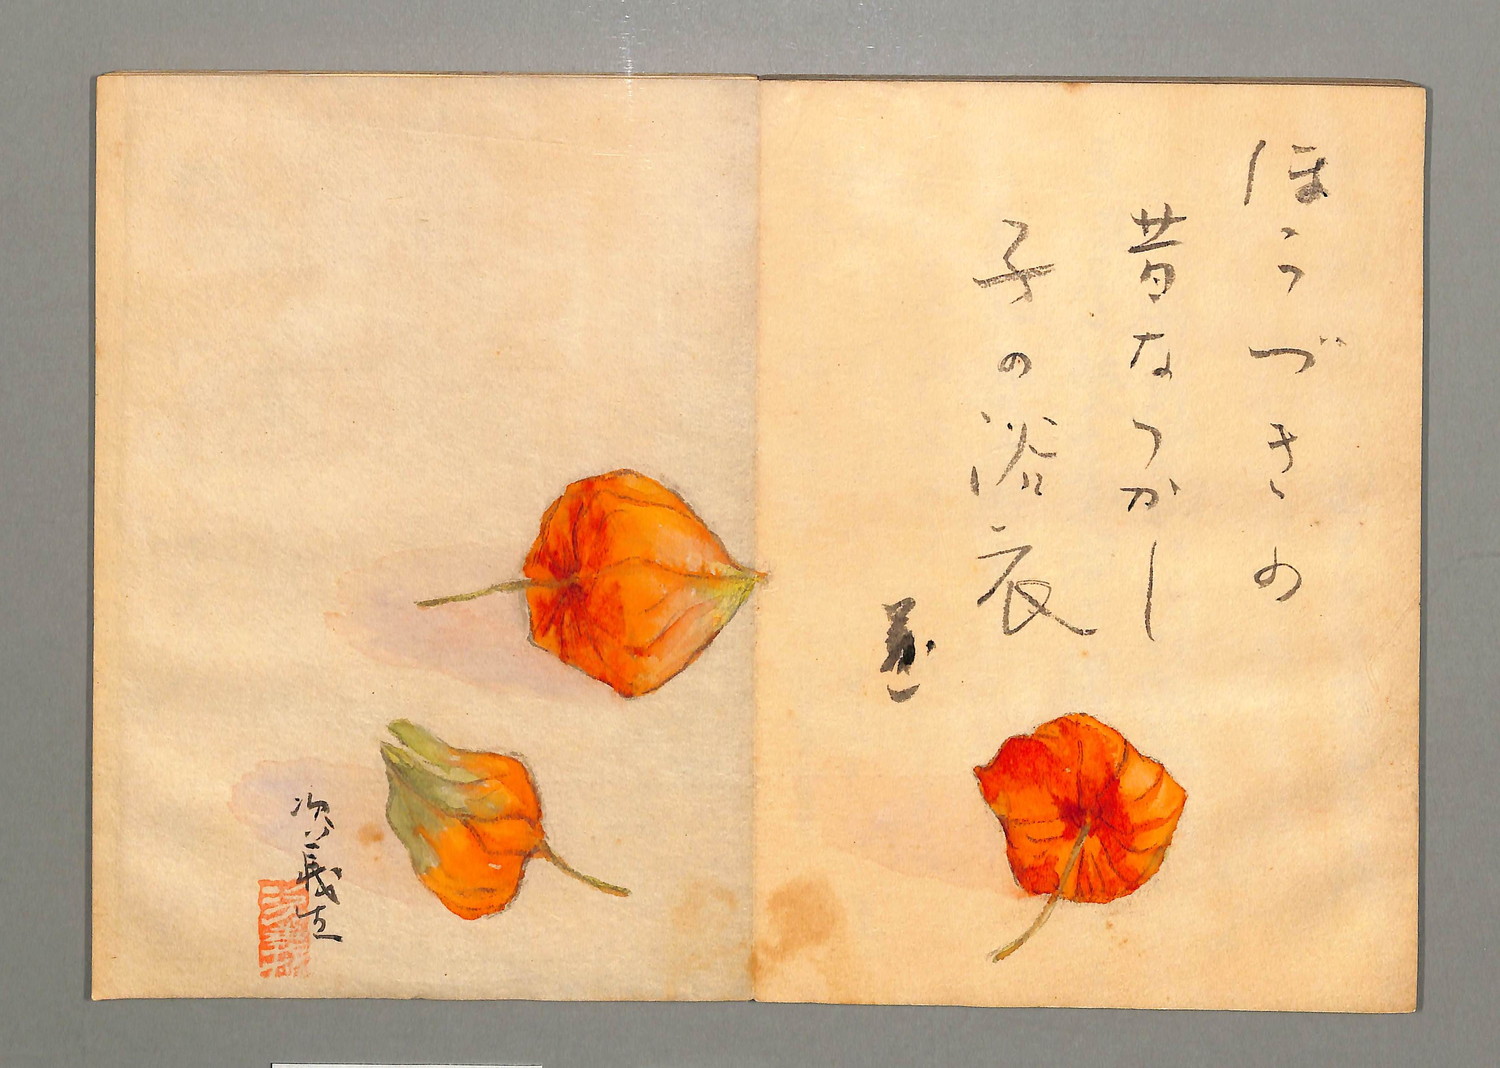 ほうづきの
昔なつかし
子の浴衣
次義生